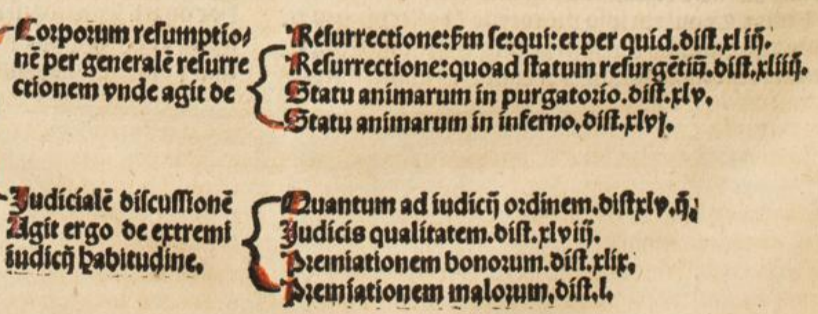 Corporum reſumptio⸗
nē per generalē reſurre
ctionem vnde agit de
Reſurrectione: ẜm ſe: qui: et per quid. diſt. xl iij.
Reſurrectione: quoad ſtatum reſurgētiū. diſt. xliiij.
Statu animarum in purgatorio. diſt. xlv.
Statu animarum in inferno. diſt. xlvj.
Judicialē diſcuſſionē
Agit ergo de extremi
iudicij habitudine.
Quantum ad iudicij ordinem. diſt xlv. ij.
Judicis qualitatem. diſt. xlviij.
Premiationem bonorum. diſt. xlix.
Premiationem malorum. diſt. l.